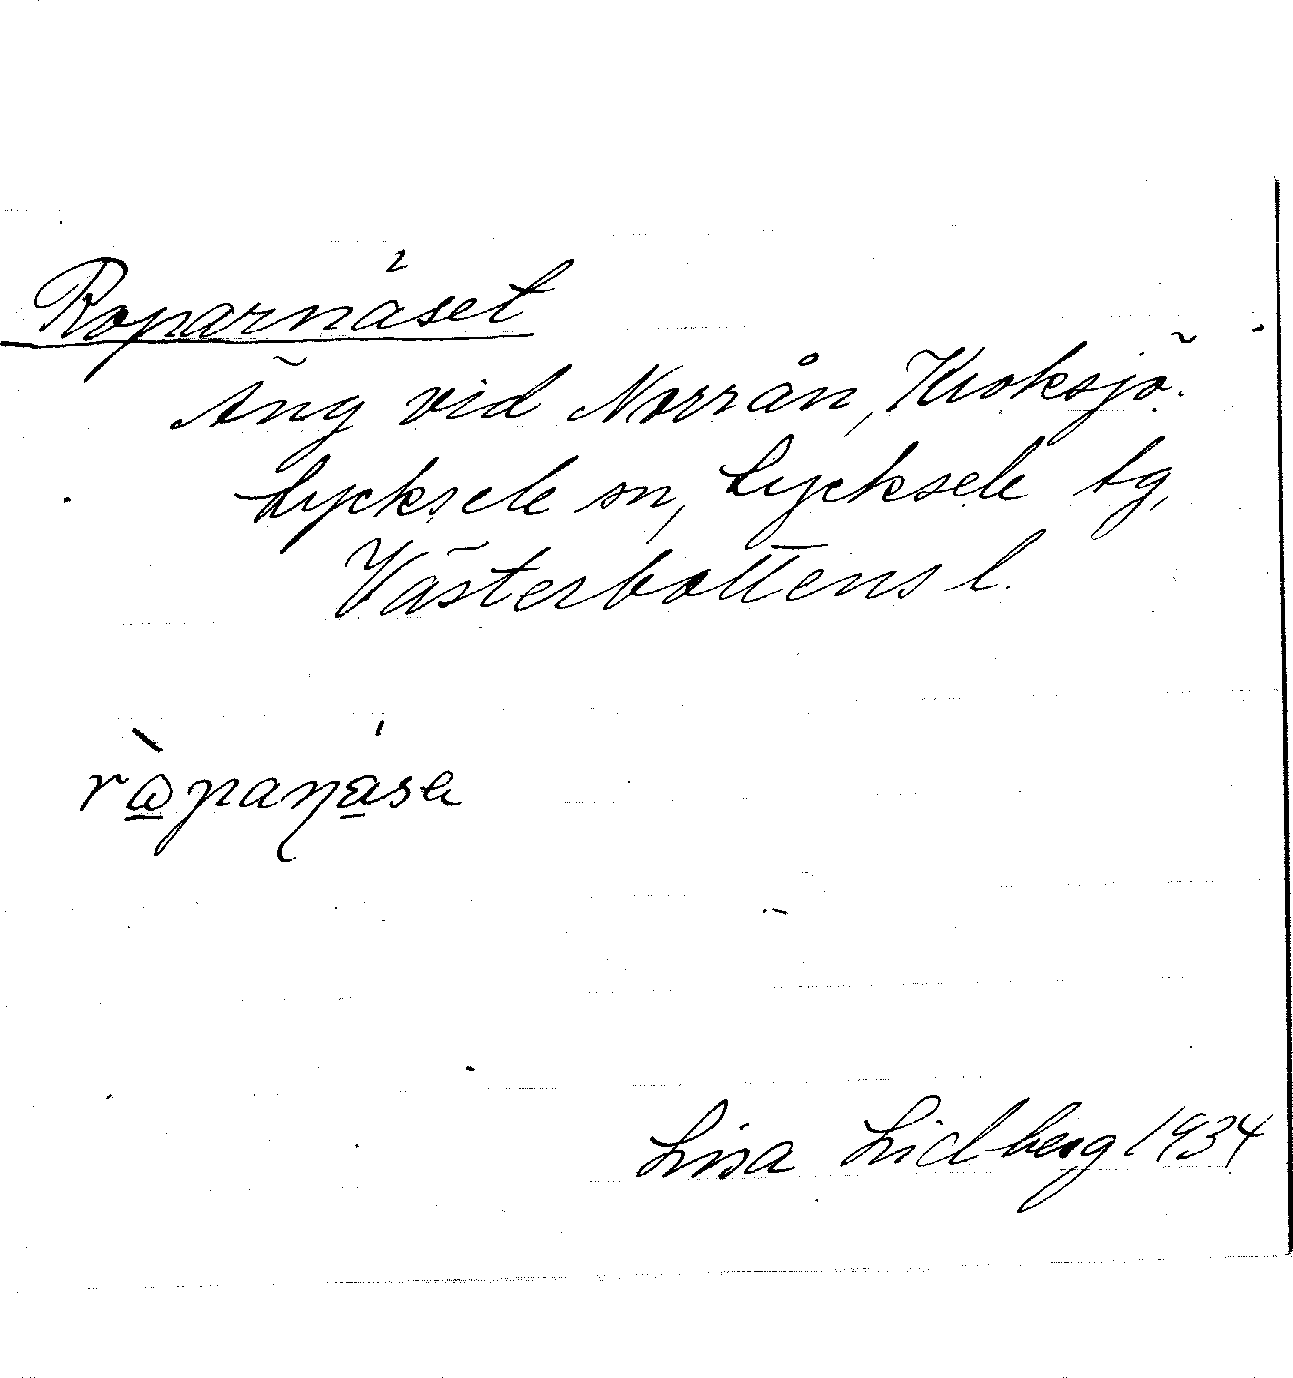 Roparnäset
Äng vid Norrån, Kroksjö.
Lycksele sn, Lycksele tg,
Västerbottens l.
rὼpaṇásɐ
Lisa Lidberg 1934